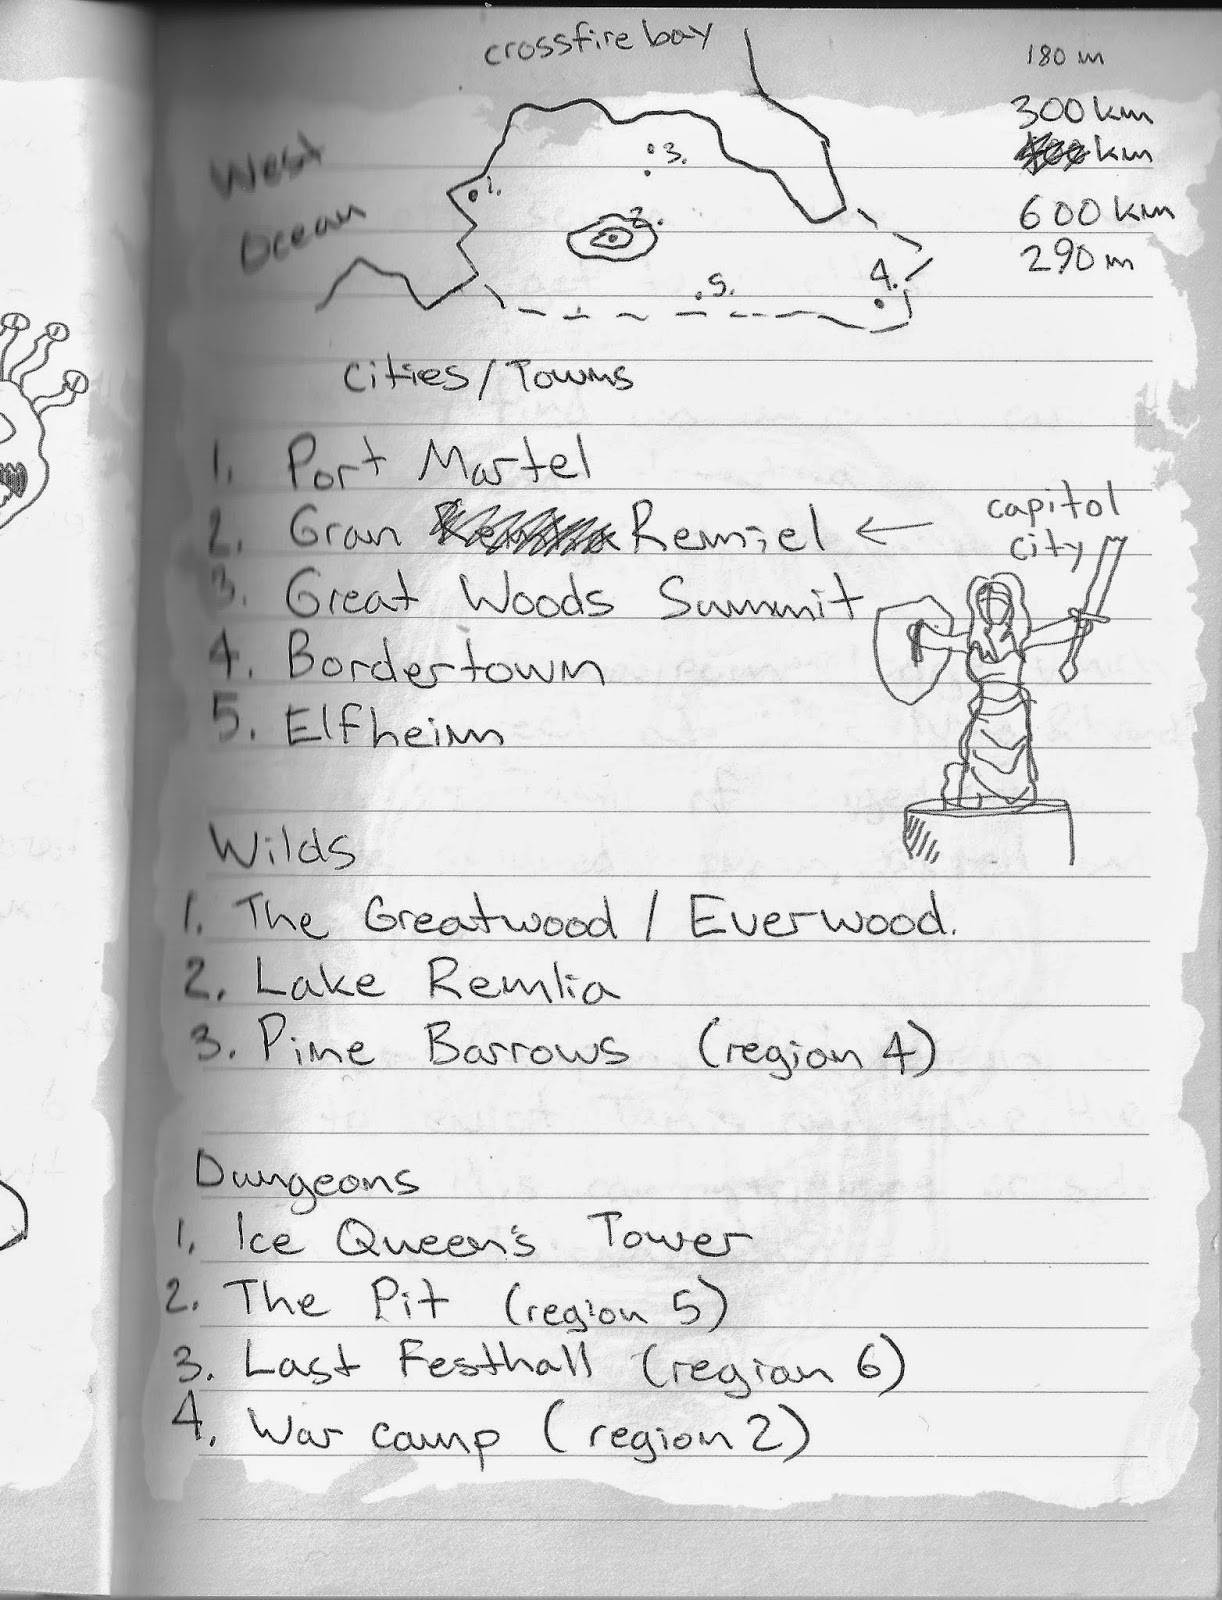 crossfire bay
180 m
300 km
km
600 km
290 m
West
Ocean
1.
3.
2.
4.
5.
Cities/Towns
1. Port Martel
2. Gran Remiel ← capitol city
3. Great Woods Summit
4. Bordertown
5. Elfheim
Wilds
1. The Greatwood / Everwood.
2. Lake Remlia
3. Pine Barrows (region 4)
Dungeons
1. Ice Queen's Tower
2. The Pit (region 5)
3. Last Festhall (region 6)
4. War camp (region 2)